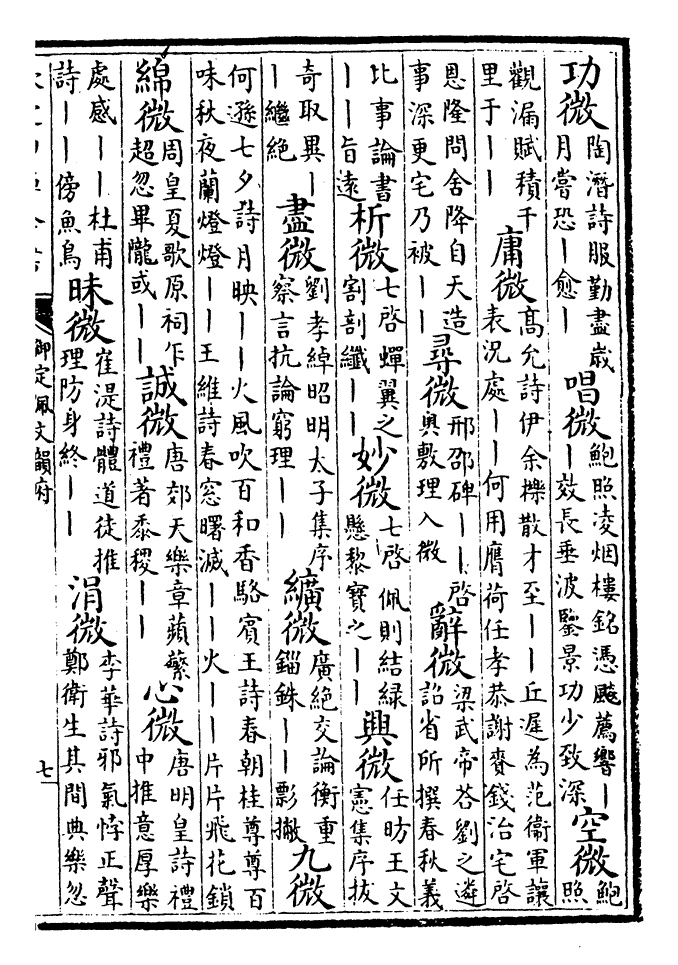 功微陶潛詩服勤盡歲月嘗恐丨愈丨唱微鮑照凌烟樓銘憑飈薦響丨丨效長垂波鑒景功少致深空微鮑照
觀漏賦積千里于丨丨庸微髙允詩伊余櫟散才至丨丨丘遲為范衞軍讓表況處丨丨何用膺荷任孝恭謝賚錢治宅啓
恩隆問舍降自天造事深更宅乃被丨丨尋微邢邵碑丨丨啓奥敷理入微辭微梁武帝答劉之遴詔省所撰春秋義
比事論書丨丨旨遠析微七啓蟬翼之割剖纖丨丨妙微七啓佩則結緑懸黎寶之丨丨興微任昉王文憲集序拔
奇取異丨丨繼絶盡微劉孝綽昭明太子集序察言抗論窮理丨丨纊微廣絶交論衡重錙銖丨丨彯撇九微
何遜七夕詩月映丨丨火風吹百和香駱賓王詩春朝桂尊尊百味秋夜蘭燈燈丨丨王維詩春窓曙滅丨丨火丨丨片片飛花鎖
綿微周皇夏歌原祠乍超忽畢隴或丨丨誠微唐郊天樂章蘋蘩禮著黍稷丨丨心微唐明皇詩禮中推意厚樂
處感丨丨杜甫詩丨丨傍魚鳥昧微崔湜詩體道徒推理防身終丨丨涓微李華詩邪氣悖正聲鄭衞生其間典樂忽
御定佩文韻府
七